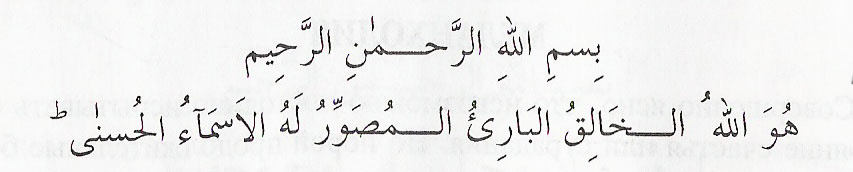 بِسمِ اللهِ الرَّحـــمٰنِ الرَّحِيم
هُوَ اللهُ الـــخَالِقُ البَارِئُ الـــمُصَوِّرُ لَهُ الاَسْمَآءُ الحُسنٰى ؕ